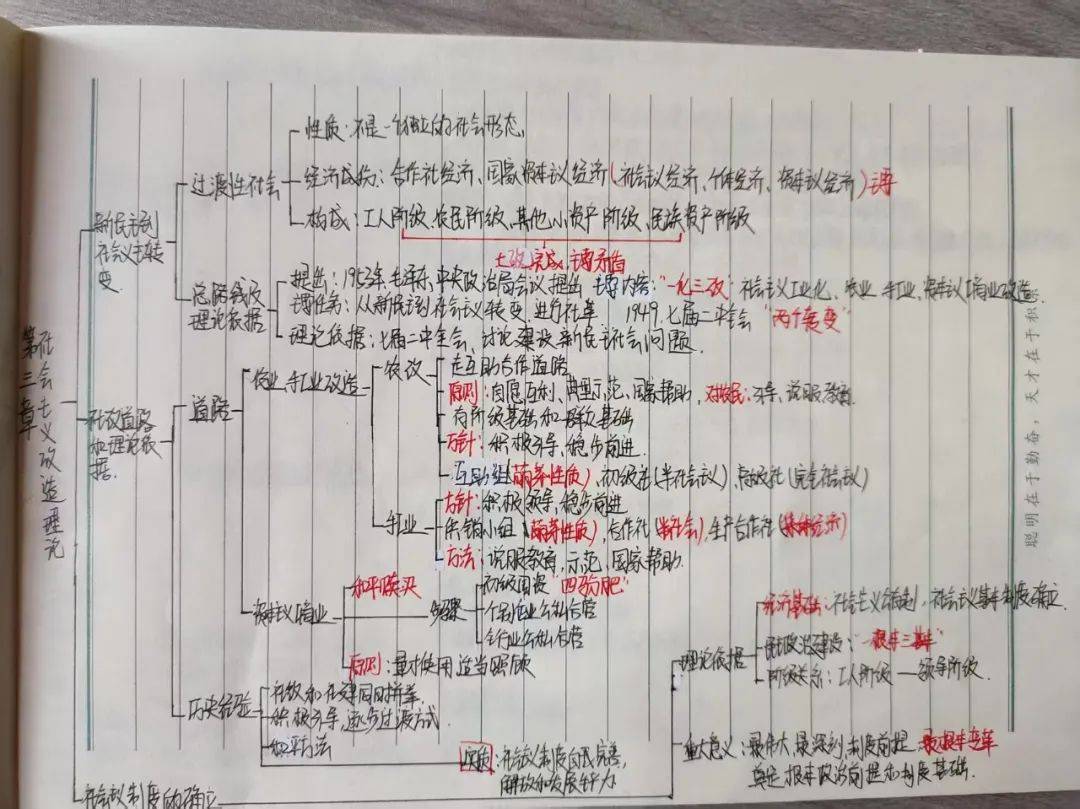 第三章 社会主义改造理论
新民主到
社会主义转
变
过渡性社会
性质:不是一个独立的社会形态.
经济成份:合作社经济、国家资本主义经济(社会主义经济、个体经济、资本主义经济)主要
构成:工人阶级、农民阶级、其他小资产阶级、民族资产阶级
土改完成 主要矛盾
总路线及
理论依据
提出:1953年 毛泽东,中央政治局会议提出 主要内容:"一化三改" 社会主义工业化、农业、手工业、资本主义工商业改造.
主要任务:从新民主到社会主义转变,进行社革 1949.七届二中全会 "两个转变"
理论依据:七届二中全会,讨论建设新民主社会问题.
社改道路
和理论依
据.
道路
农业、手工业改造
农改
走互助合作道路
原则:自愿互利、典型示范、国家帮助,对农民:引导、说服教育.
有阶级基础和群众基础
方针:积极引导,稳步前进.
互助组(萌芽性质)、初级社(半社会主义)、高级社(完全社会主义)
手工业
方针:积极领导,稳步前进
供销小组(萌芽性质),合作社(半社会),生产合作社(集体经济)
方法:说服教育,示范,国家帮助.
资本主义工商业
和平赎买
步骤
初级国资 "四马分肥"
个别企业公私合营
全行业公私合营
原则:量才使用 适当照顾
历史经验
社改和社建同时并举.
积极引导,逐步过渡方式.
和平方法
社会主义制度的确立
实质:社会主义制度自我完善,
解放和发展生产力
理论依据
经济基础:社会主义公有制、社会主义基本制度确立.
民主政治建设:"一根本三基本"
阶级关系:工人阶级——领导阶级.
重大意义:最伟大、最深刻、制度前提 最根本变革
奠定根本政治前提和制度基础.
聪明在于勤奋,天才在于积